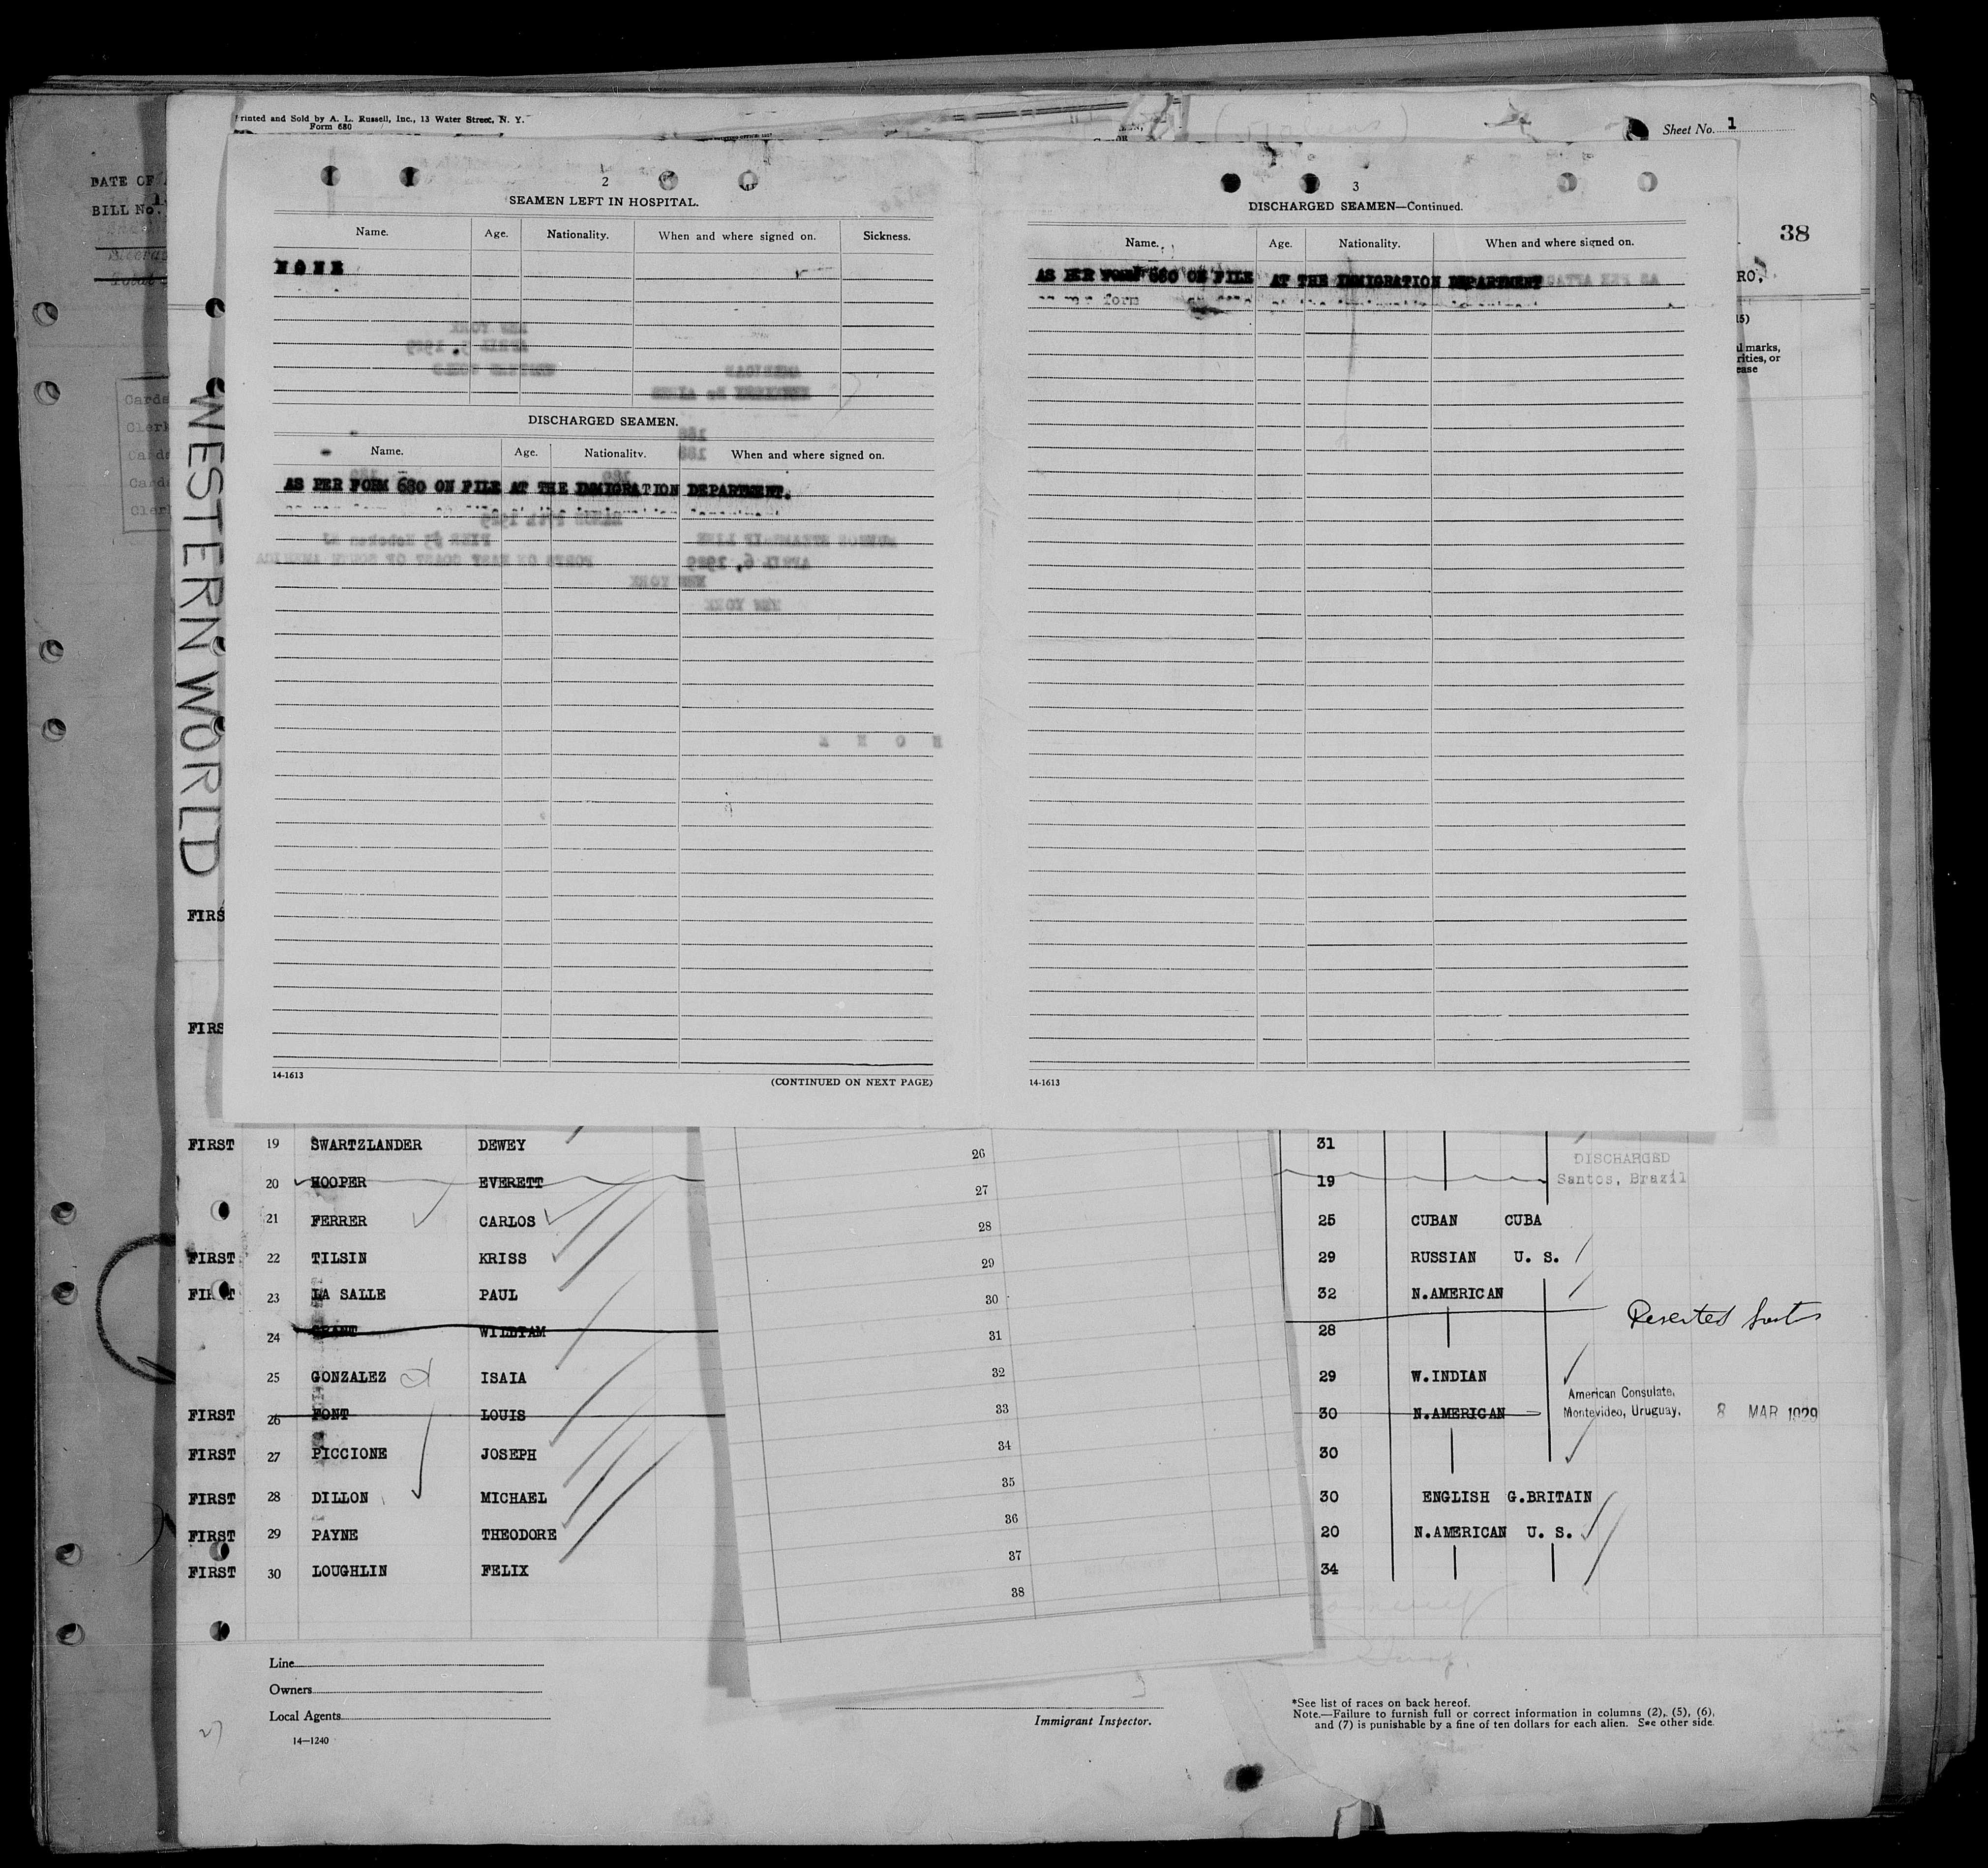 Printed and Sold by A. L. Russell, Inc., 13 Water Street, N. Y.
Form 680
Sheet No. 1
DATE OF
BILL No.
38
RO.
15)
l marks,
rities, or
ease
WESTERN WORLD
Cards
Clerk
Cards
Cards
Clerk
2
SEAMEN LEFT IN HOSPITAL.
Name. Age. Nationality. When and where signed on. Sickness.
NONE
DISCHARGED SEAMEN.
Name. Age. Nationality. When and where signed on.
AS PER FORM 680 ON FILE AT THE IMMIGRATION DEPARTMENT.
14-1613
(CONTINUED ON NEXT PAGE)
3
DISCHARGED SEAMEN—Continued.
Name. Age. Nationality. When and where signed on.
AS PER FORM 680 ON FILE AT THE IMMIGRATION DEPARTMENT
14-1613
FIRS
FIRS
FIRST 19 SWARTZLANDER DEWEY 26 31
DISCHARGED
Santos, Brazil
20 HOOPER EVERETT 27 19
21 FERRER CARLOS 28 25 CUBAN CUBA
FIRST 22 TILSIN KRISS 29 29 RUSSIAN U. S.
FIRST 23 LA SALLE PAUL 30 32 N.AMERICAN
24 GRANT WILLIAM 31 28 Deserted
25 GONZALEZ ISAIA 32 29 W.INDIAN
American Consulate,
Montevideo, Uruguay, 8 MAR 1929
FIRST 26 FONT LOUIS 33 30 N.AMERICAN
FIRST 27 PICCIONE JOSEPH 34 30
35
FIRST 28 DILLON MICHAEL 36 30 ENGLISH G.BRITAIN
FIRST 29 PAYNE THEODORE 37 20 N.AMERICAN U. S.
FIRST 30 LOUGHLIN FELIX 38 34
Line
Owners
Local Agents
14—1240
27
Immigrant Inspector.
*See list of races on back hereof.
Note.—Failure to furnish full or correct information in columns (2), (5), (6),
and (7) is punishable by a fine of ten dollars for each alien. See other side.